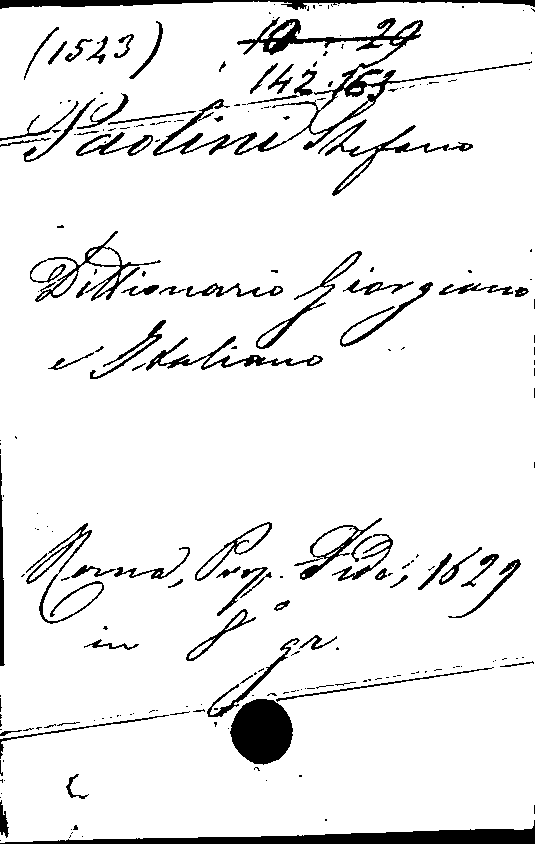 (1523) 10 . 29
142.163
Paolini Stefano
Dittionario Giorgiano
e Italiano
Roma, Prop. Fide, 1629
in 8° gr.